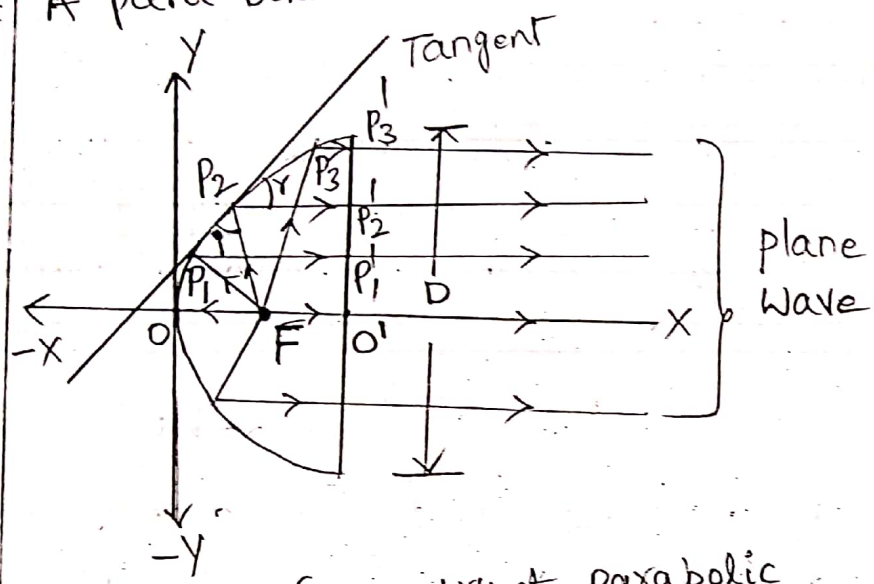 A
Y
Tangent
P3'
P2
r
P3
P2'
i
P1
P1'
D
Plane
Wave
-X
O
F
O'
X
-Y
parabolic